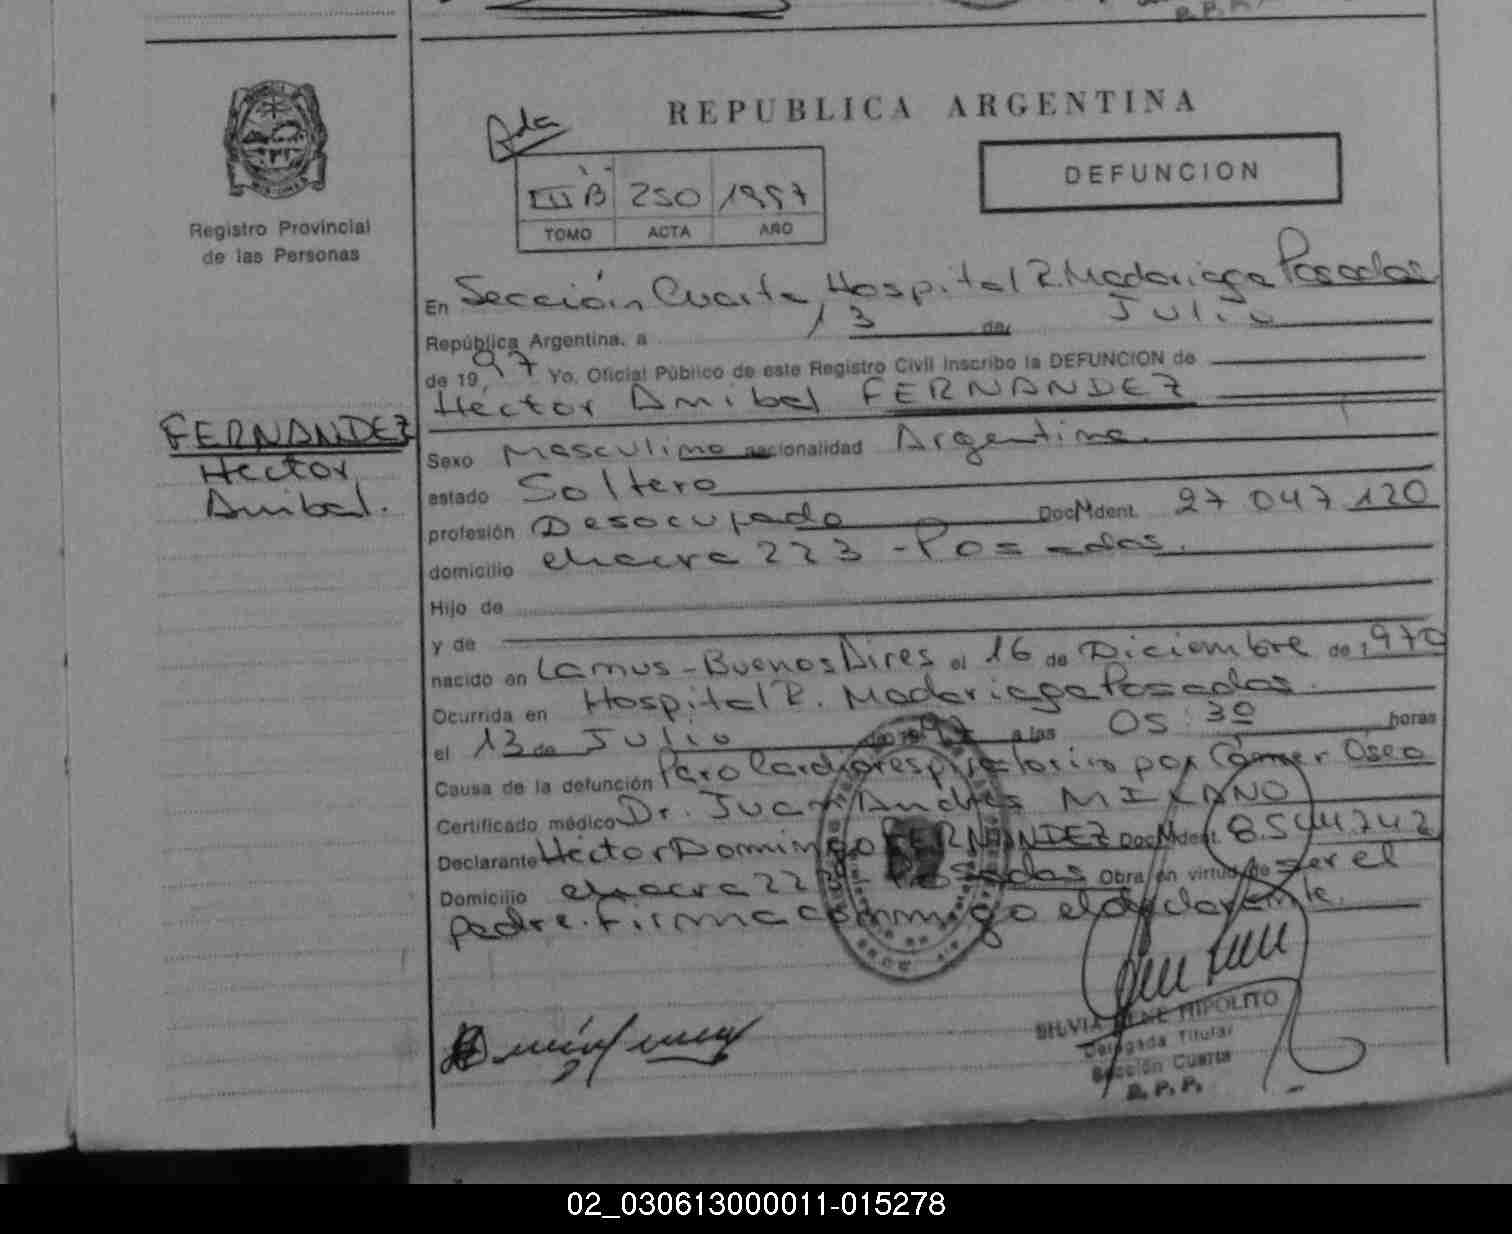 Registro Provincial
de las Personas
FERNANDEZ
Hector
Anibal.
REPUBLICA ARGENTINA
Ada
III B 250 1997
TOMO ACTA AÑO
DEFUNCION
En Sección Cuarta, Hospital R. Madariaga Posadas
República Argentina, a 13 de Julio
de 1997 Yo, Oficial Público de este Registro Civil inscribo la DEFUNCION de
Héctor Anibal FERNANDEZ
Sexo Masculino nacionalidad Argentina.
estado Soltero
profesión Desocupado Doc M Ident. 27 047 120
domicilio chacra 223 - Posadas.
Hijo de
y de
nacido en Lanus - Buenos Aires el 16 de Diciembre de 1970
Ocurrida en Hospital R. Madariaga Posadas.
el 13 de Julio de 1997 a las 05:30 horas
Causa de la defunción Paro Cardiorespiratorio por Cáncer Oseo
Certificado médico Dr. Juan Andrés
Declarante Héctor Domingo FERNANDEZ Doc M Ident. 8.544.742
Domicilio chacra 223 Posadas Obra en virtud de ser el
padre. Firma conmigo el declarante.
SILVIA IRENE HIPOLITO
Delegada Titular
Sección Cuarta
R. P. P.
02_030613000011-015278